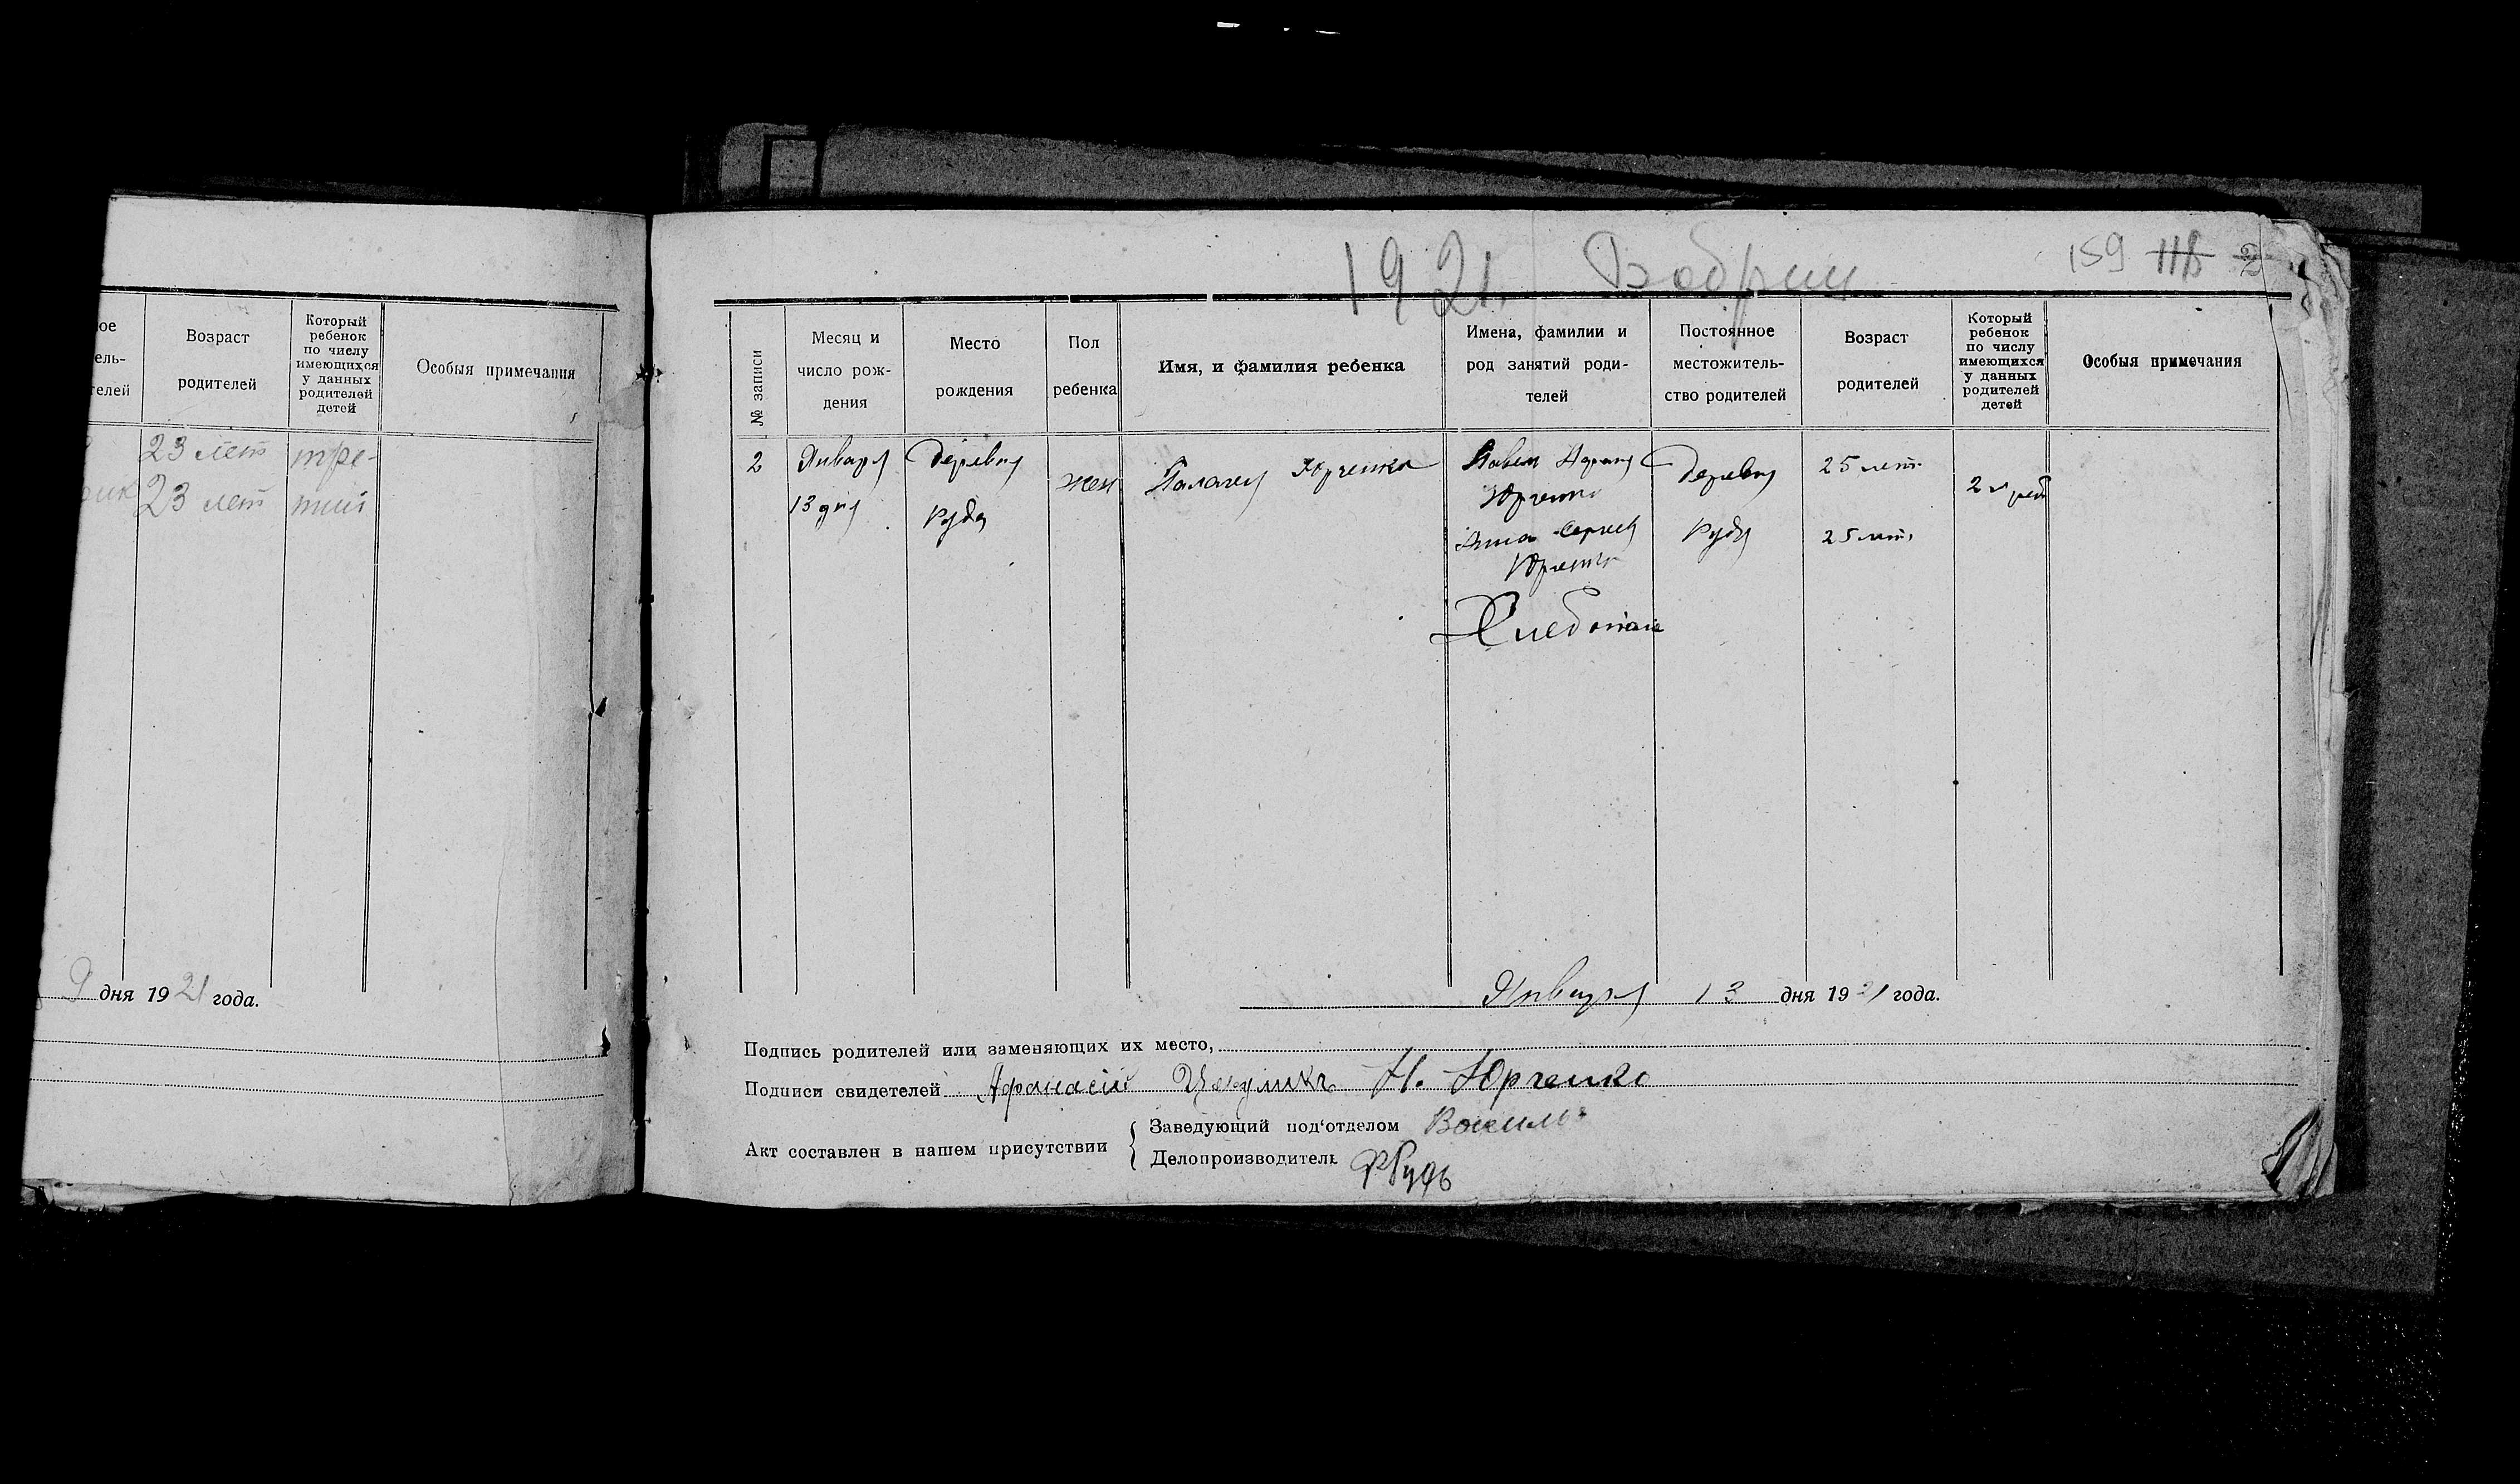 ое
ель-
телей
Возраст
родителей
Который
ребенок
по числу
имеющихся
у данных
родителей
детей
Особыя примечания
23 лет
тре-
23 лет
тий
9 дня 1921 года.
1921. Бобрик
159 118 2
№ записи
Месяц и
число рож-
дения
Место
рождения
Пол
ребенка
Имя, и фамилия ребенка
Имена, фамилии и
род занятий роди-
телей
Постоянное
местожитель-
ство родителей
Возраст
родителей
Который
ребенок
по числу
имеющихся
у данных
родителей
детей
Особыя примечания
2
Января
13 дня
Деревня
Руда
жен
Палагея Юрченко
Павел
Юрченко
Анна
Юрченко
Деревня
Руда
25 лет
25 лет
2
Января 13 дня 1921 года.
Подпись родителей или заменяющих их место,
Подписи свидетелей Афанасій Н. Юрченко
Акт составлен в нашем присутствии
Заведующий под'отделом
Делопроизводитель